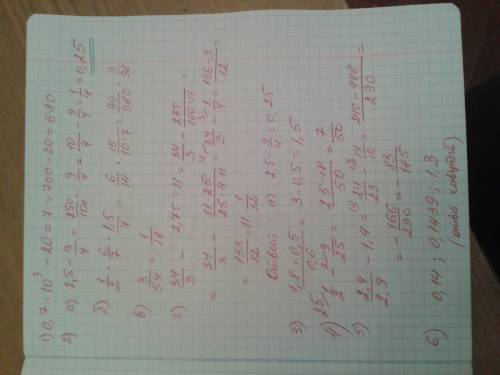 1) 0,7·10³-20=7=700-20=680
2) а) 2,5-9/4=250/100-9/4=10/4-9/4=1/4=0,25
б) 1/2·6/7·1,5/4=6/14·15/10·7=90/980=9/98
в) 3/54=1/18
г) 34/3-2,75:11=34/3-275/100·11=
=34/3-11·25/25·4·11=34/3-1/4=136-3/12=
=133/12=11 1/12
Ответ: а) 2,5-9/4=0,25
3) 1,8·0,5/0,6=3·0,5=1,5
4) 1/2-9/25=25-18/50=7/50
5) 2,4/2,9-1,4=24/29-14/10=240-406/290=
=-166/290=-83/145
6) 0,14; 0,1439; 1,3